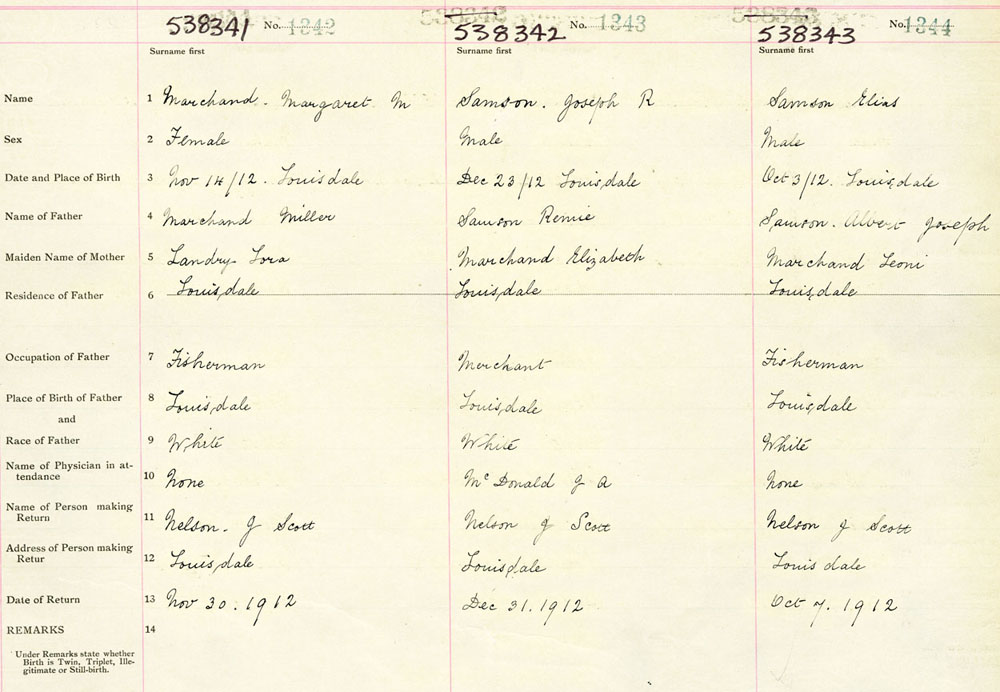 538341 No. 1342 538342 No. 1343 538343 No. 1344
Surname first Surname first Surname first
Name 1 Marchand. Margaret M Samson. Joseph R Samson Elias
Sex 2 Female Male Male
Date and Place of Birth 3 Nov 14/12. Louisdale Dec 23/12 Louisdale Oct 3/12. Louisdale
Name of Father 4 Marchand Miller Samson Remie Samson. Albert Joseph
Maiden Name of Mother 5 Landry Lora Marchand Elizabeth Marchand Leoni
Residence of Father 6 Louisdale Louisdale Louisdale
Occupation of Father 7 Fisherman Merchant Fisherman
Place of Birth of Father 8 Louisdale Louisdale Louisdale
and
Race of Father 9 White White White
Name of Physician in at-
tendance 10 None McDonald J A None
Name of Person making
Return 11 Nelson. J Scott Nelson J Scott Nelson J Scott
Address of Person making
Retur 12 Louisdale Louisdale Louisdale
Date of Return 13 Nov 30. 1912 Dec 31. 1912 Oct 7. 1912
REMARKS 14
Under Remarks state whether
Birth is Twin, Triplet, Ille-
gitimate or Still-birth.